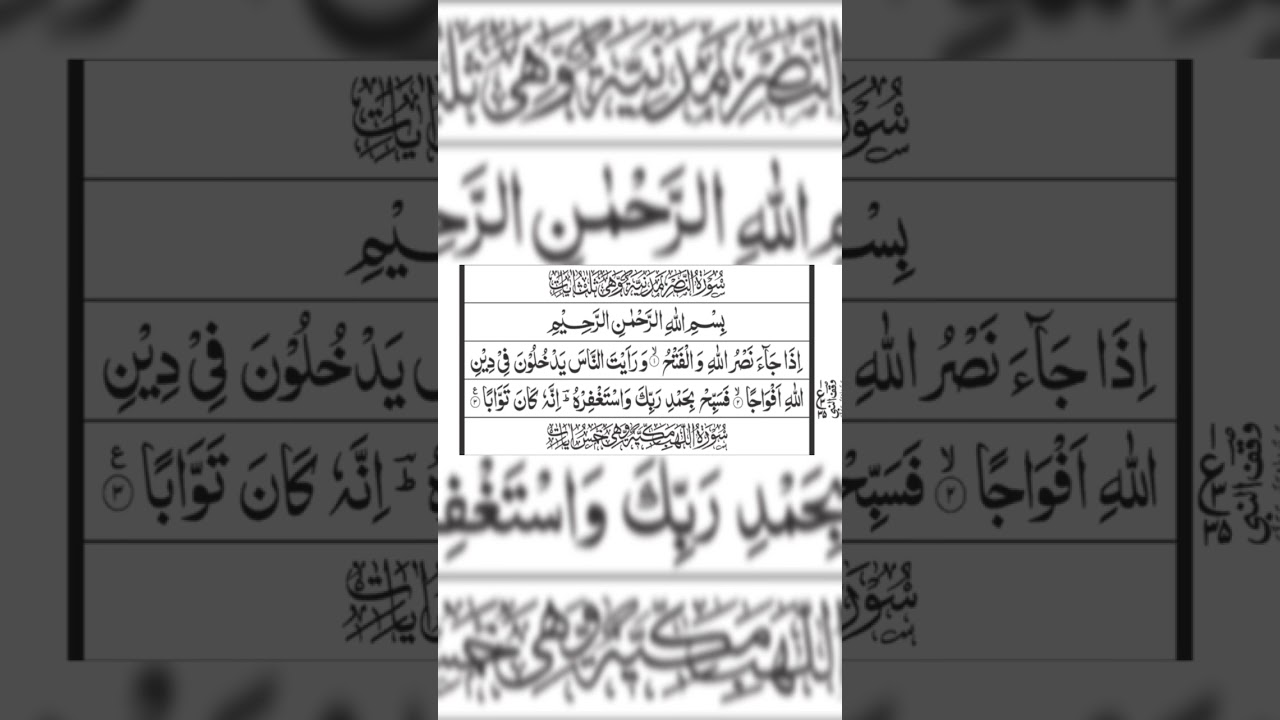 سُوْرَةُ النَّصْرِ مَدَنِيَّةٌ وَّهِيَ ثَلٰثُ اٰيَاتٍ
بِسْمِ اللّٰهِ الرَّحْمٰنِ الرَّحِيْمِ
اِذَا جَآءَ نَصْرُ اللّٰهِ وَ الْفَتْحُ ۙ۱ وَ رَاَيْتَ النَّاسَ يَدْخُلُوْنَ فِىْ دِيْنِ
اللّٰهِ اَفْوَاجًا ۙ۲ فَسَبِّحْ بِحَمْدِ رَبِّكَ وَاسْتَغْفِرْهُ ؕ اِنَّهٗ كَانَ تَوَّابًا ۳ ع
سُوْرَةُ اللَّهَبِ مَكِّيَّةٌ وَّهِيَ خَمْسُ اٰيَاتٍ
ع
۳
۳۵
وقف النبي